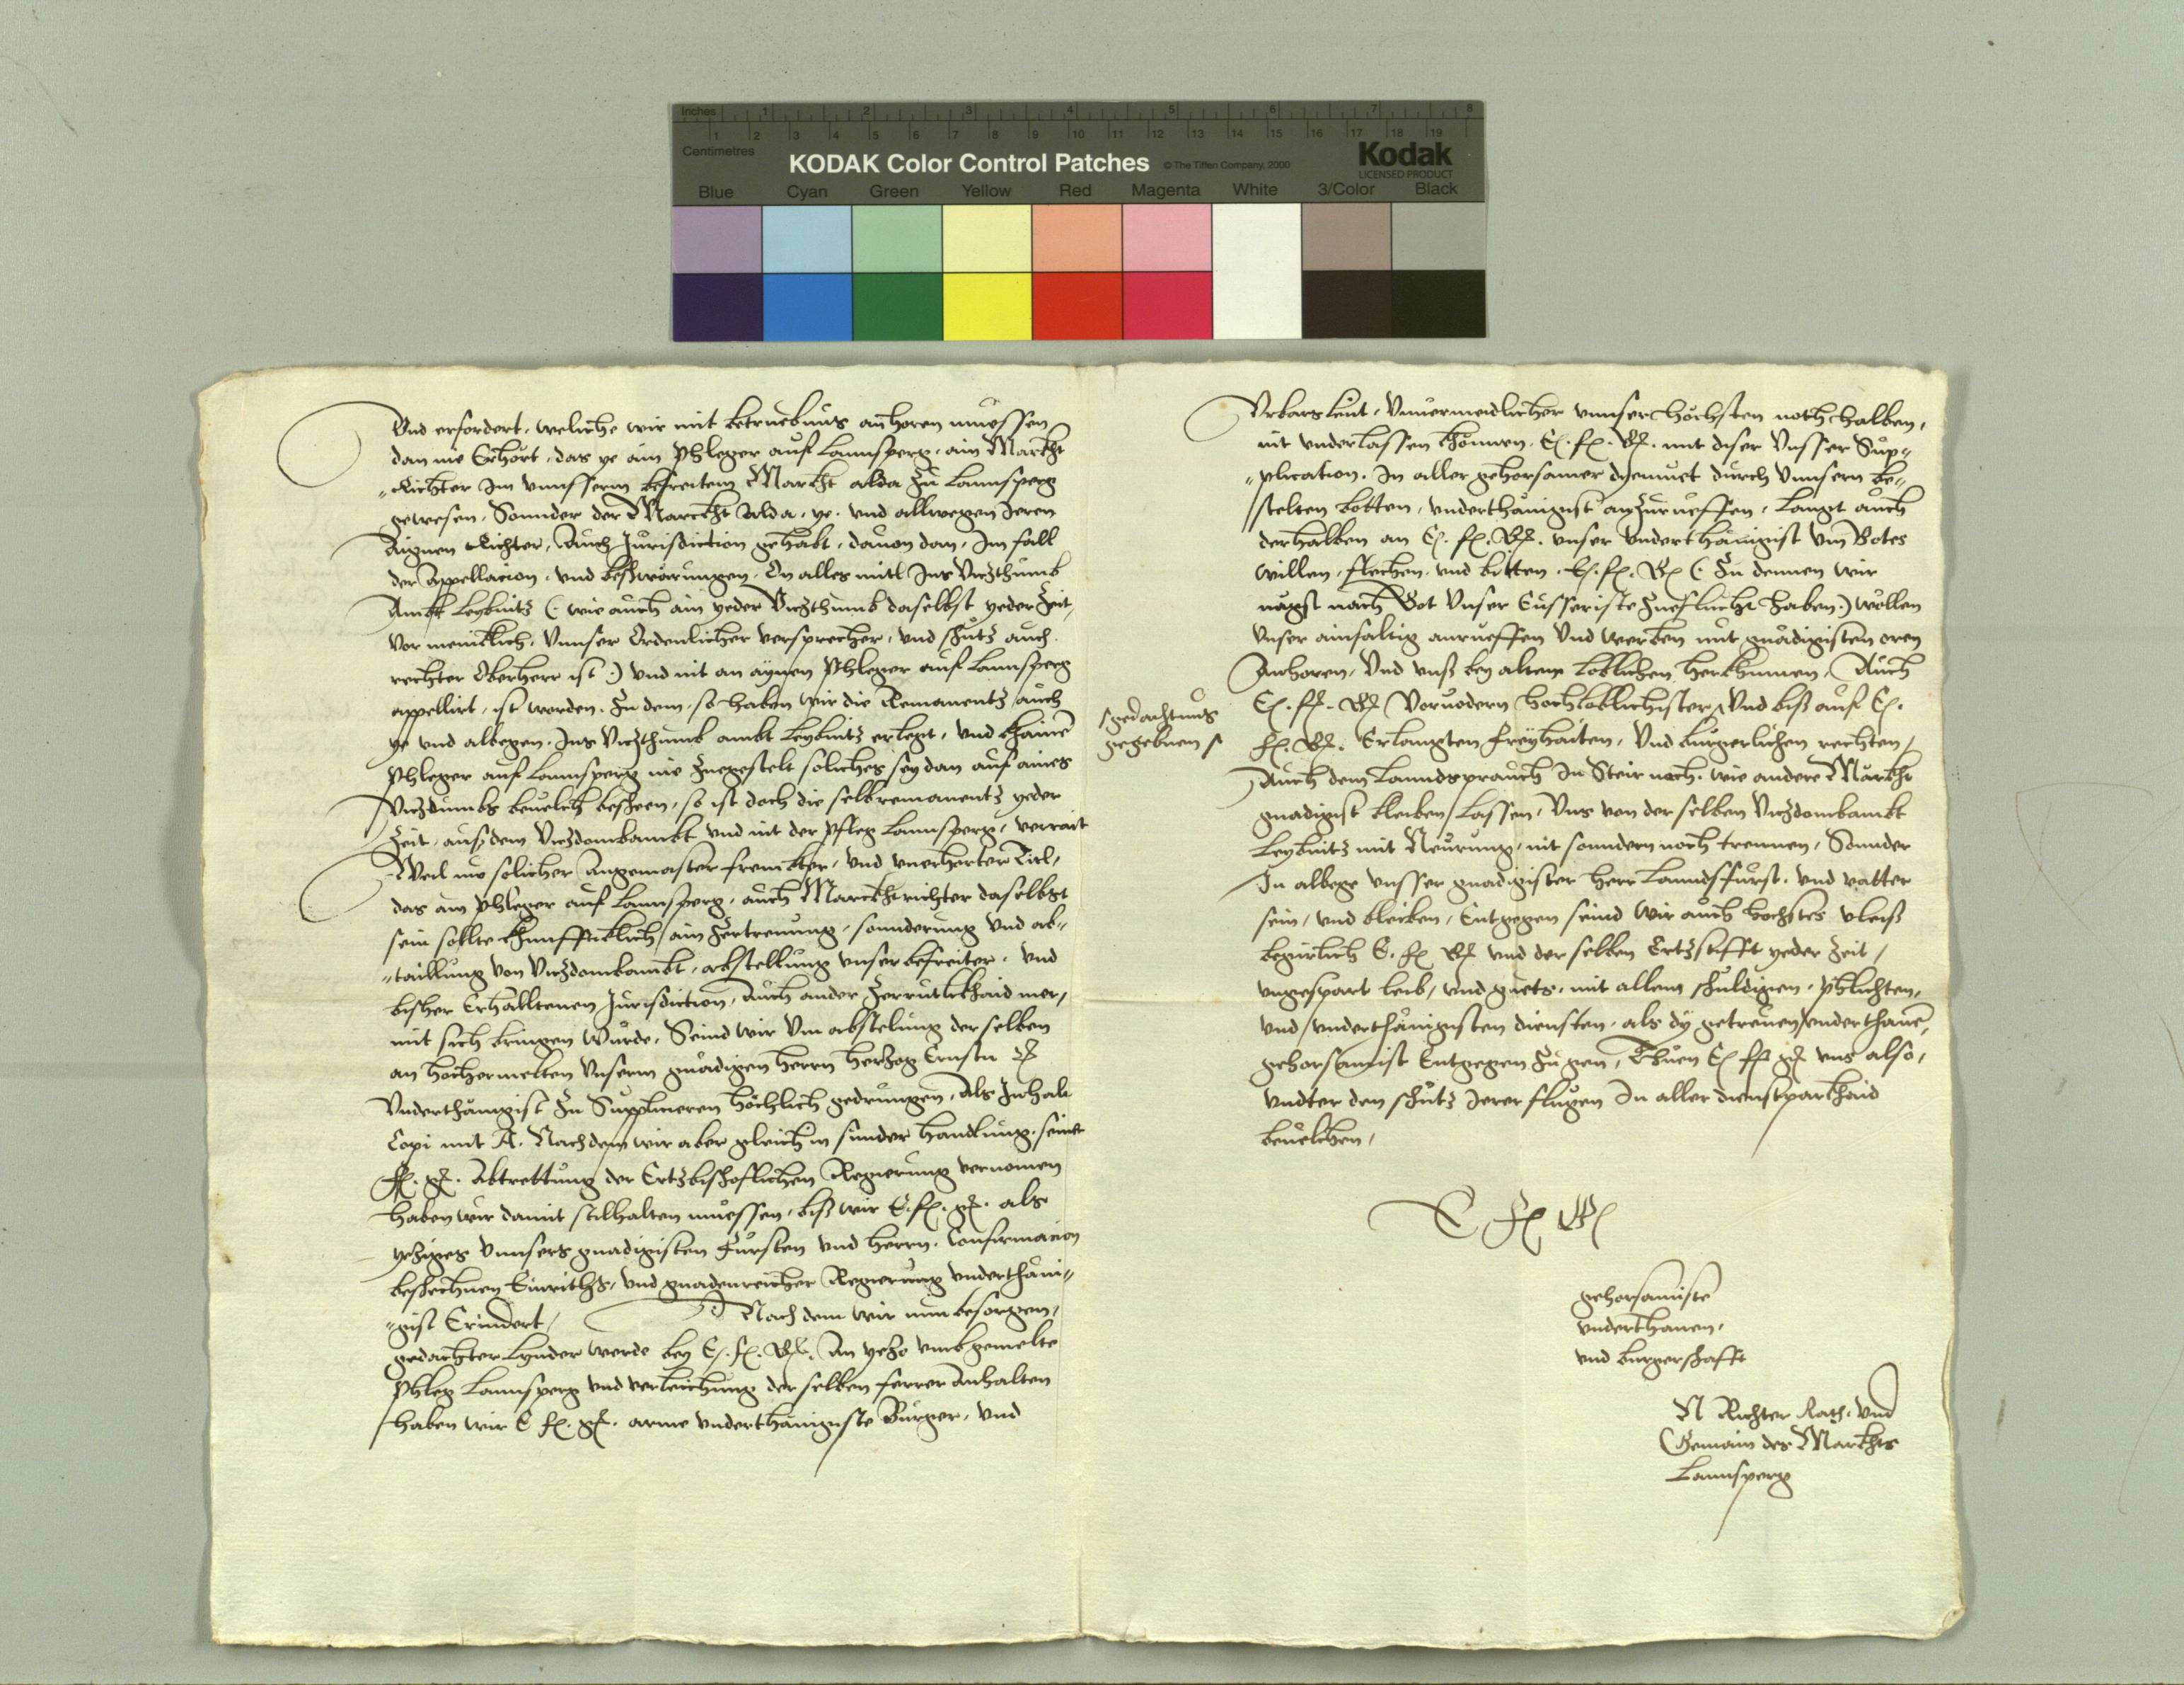 Inches 1 2 3 4 5 6 7 8
1 2 3 4 5 6 7 8 9 10 11 12 13 14 15 16 17 18 19
Centimetres
KODAK Color Control Patches © The Tiffen Company, 2000 Kodak
LICENSED PRODUCT
Blue Cyan Green Yellow Red Magenta White 3/Color Black
Vnd erfordert, weliche wir mit betruebnus anhoren muessen
dan nie Gehört, das ye ain Phleger auf Lannsperg, ain Marckht
Richter Im vnnsserm befreitem Marckht alda Zu Lannsperg
gewesen, Sonnder der Marckht Alda, ye, vnd allwegen Ieren
Aignen Richter, Auch Iurisdiction gehabt, dauon dan, Im fall
der Appellacion, vnd beßwärungen, On alles mitl Ins Viczthumb
Ambt Leybnitz (: wie auch ain yeder Viczthumb daselbst yeder Zeit,
vor meniklich, Vnnser Ordenlicher versprecher, vnd schutz auch
rechter Oberherr ist :) vnd nit an aynen Phleger auf Lannsperg
appellirt, ist worden. Zu dem, so haben wir die Remanentz auch
ye vnd albegen, Ins Viczthumb ambt Leybnitz erlegt, vnd khainē
Phleger auf Lannsperg nie Zuegestelt soliches sey dan auf aines
Viczdumbs beuelch beschehen, so ist doch die selb remanentz yeder
Zeit, aus dem Viczdombambt vnd nit der Pfleg Lannsperg, verrait
Weil nu solicher Angemaster frembter, vnd vnerherter Titl,
das ain Phleger auf Lannsperg, auch Marckhtrichter daselbst
sein sollte khunfftiklich ain Zertrenung, sonnderung vnd ab=
=taillung von Viczdombambt, abstellung vnser befreiter, vnd
bisher Erhalltenen Iurisdiction, Auch ander Zerrutlikhaid mer,
mit sich bringen Wurde, Seind wir Vm abstelung der selben
an hochermelten Vnserm gnädigen herrn herzog Ernstn
Vnderthänigist Zu Supplicieren höchlich gedrungen, Als Inhalt
Copi mit A. Nachdem wir aber gleich in sunder handlung, seiner
Abtrettung der Ertzbischoflichen Regierung vernomen
haben wir damit stilhalten muessen, biß wir E. f. g. als
yeziges vnnsers gnadigisten Fürsten vnd herrn, Confirmacion
beschechnen Einriths, vnd gnadenreicher Regierung vnderthäni=
=gist Erindert, Nach dem wir nun besorgen,
gedachter Lynder werde bey E. f. G. An yezo vmb gemelte
Phleg Lannsperg vnd verleichung der selben ferrer Anhalten
haben wir E f. g. arme vnderthänigiste Burger, vnd
Vrbars Leut, Vnuermeidlicher vnnser höchsten noth halben,
nit vnderlassen khönnen, E. f. G. mit diser Vnsser Sup=
=plication, In aller gehorsamer diemuet durch Vnnsern be=
stelten botten, vnderthänigist anZurueffen, Langt auch
derhalben an E. f. G. vnser vnderthänigist Vm Gotes
willen, flechen, vnd bitten, E. f. G (: Zu dennen wir
nägst nach Got Vnser Eusseriste Zueflucht haben :) wöllen
Vnser ainfaltig anrueffen Vnd Werben mit gnädigisten oren
Anhoren, Vnd vnß bey altem loblichen herkhumen, Auch
E. f. G Voruodern hochloblichister Vnd biß auf E.
gedachtnus
gegebnen
f. G. Erlangten freyhaiten, Vnd burgerlichen rechten,
Auch dem Lanndsprauch In Steir noch, wie andere Märckht
gnadigist bleiben Lassen, Vns von der selben Viczdombambt
Leybnitz mit Neurung, nit sonndern noch trennen, Sonnder
In albege vnsser gnadigister herr Lanndsfürst, vnd vatter
sein, vnd bleiben, Entgegen seind Wir auch höchstes vleiß
begirlich E. f G vnd der selben Ertzstifft yeder Zeit,
vngespart leib, vnd guets, mit allem schuldigen, phlichten,
vnd vnderthänigisten diensten, als dy getreuen vnderthanē,
gehorsamist Entgegen Zu gen, Thuen E f g vns also,
vndter den schutz Ierer flugen In aller dienstparkhaid
beuelchen,
E F G
gehorsamiste
vnderthanen,
vnd burgerschafft
N Richter Rath, vnd
Gemain des Marckhts
Lannsperg